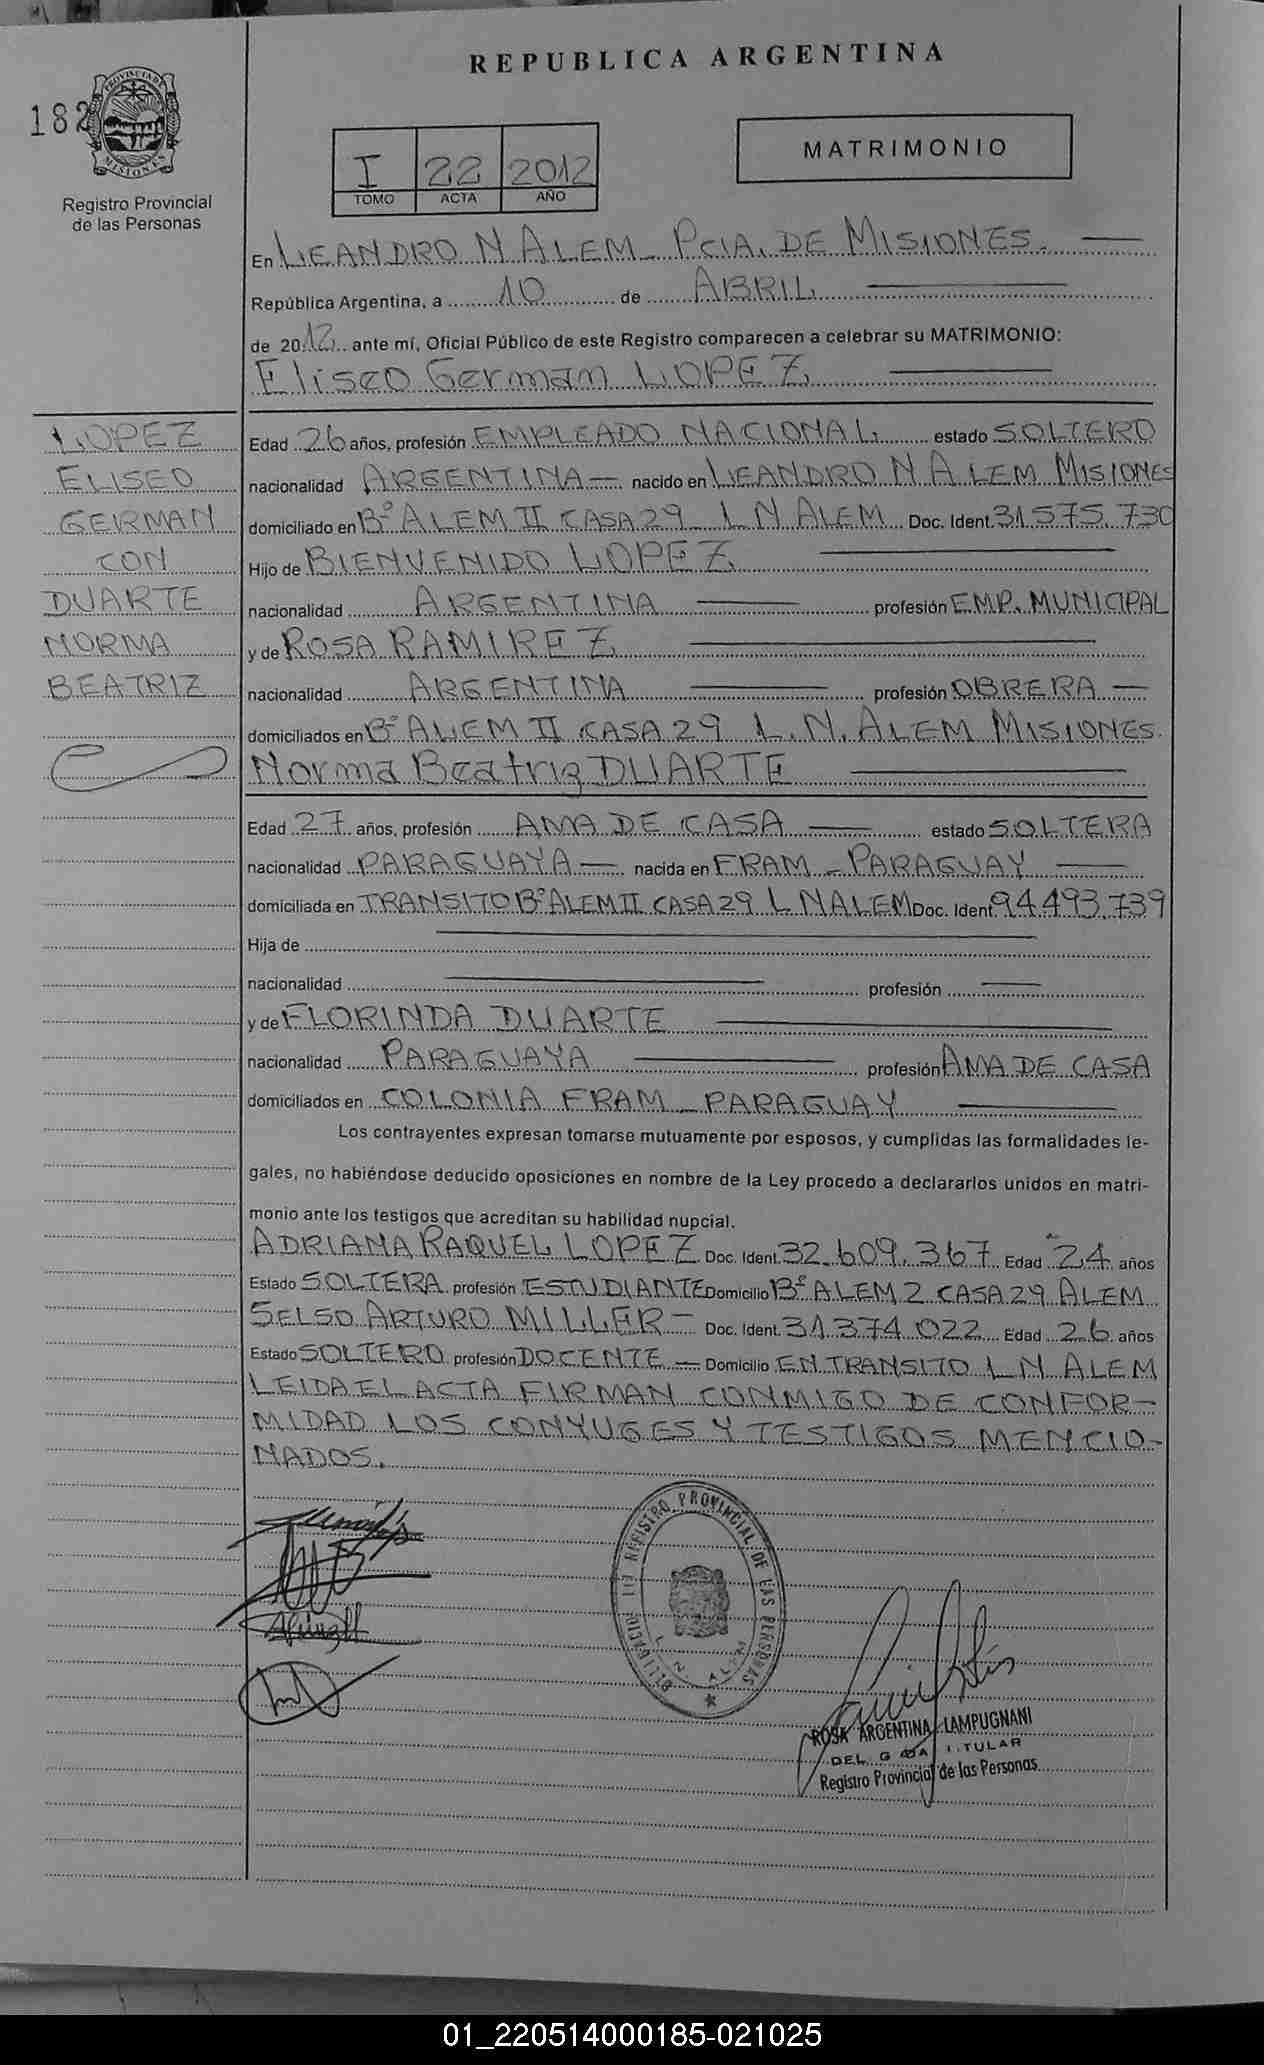 REPUBLICA ARGENTINA
182
PROVINCIA DE MISIONES
Registro Provincial
de las Personas
I 22 2012
TOMO ACTA AÑO
MATRIMONIO
En LEANDRO N ALEM - PCIA. DE MISIONES.
República Argentina, a 10 de ABRIL
de 2012 ante mí, Oficial Público de este Registro comparecen a celebrar su MATRIMONIO:
Eliseo German LOPEZ
LOPEZ
ELISEO
GERMAN
CON
DUARTE
NORMA
BEATRIZ
Edad 26 años, profesión EMPLEADO NACIONAL estado SOLTERO
nacionalidad ARGENTINA — nacido en LEANDRO N ALEM MISIONES
domiciliado en Bº ALEM II CASA 29 L N ALEM Doc. Ident. 31.575.730
Hijo de BIENVENIDO LOPEZ
nacionalidad ARGENTINA profesión EMP. MUNICIPAL
y de ROSA RAMIREZ
nacionalidad ARGENTINA profesión OBRERA —
domiciliados en Bº ALEM II CASA 29 L. N. ALEM MISIONES.
Norma Beatriz DUARTE
Edad 27 años, profesión AMA DE CASA estado SOLTERA
nacionalidad PARAGUAYA — nacida en FRAM - PARAGUAY
domiciliada en TRANSITO Bº ALEM II CASA 29 L N ALEM Doc. Ident. 94.493.739
Hija de
nacionalidad profesión
y de FLORINDA DUARTE
nacionalidad PARAGUAYA profesión AMA DE CASA
domiciliados en COLONIA FRAM - PARAGUAY
Los contrayentes expresan tomarse mutuamente por esposos, y cumplidas las formalidades le-
gales, no habiéndose deducido oposiciones en nombre de la Ley procedo a declararlos unidos en matri-
monio ante los testigos que acreditan su habilidad nupcial.
ADRIANA RAQUEL LOPEZ Doc. Ident. 32.609.367 Edad 24 años
Estado SOLTERA profesión ESTUDIANTE Domicilio Bº ALEM 2 CASA 29 ALEM
SELSO ARTURO MILLER — Doc. Ident. 31.374.022 Edad 26 años
Estado SOLTERO profesión DOCENTE — Domicilio EN TRANSITO L N ALEM
LEIDA EL ACTA FIRMAN CONMIGO DE CONFOR-
MIDAD LOS CONYUGES Y TESTIGOS MENCIO-
NADOS.
REGISTRO PROVINCIAL DE LAS PERSONAS
L. N. ALEM
ROSA ARGENTINA LAMPUGNANI
TITULAR
Registro Provincial de las Personas
01_220514000185-021025